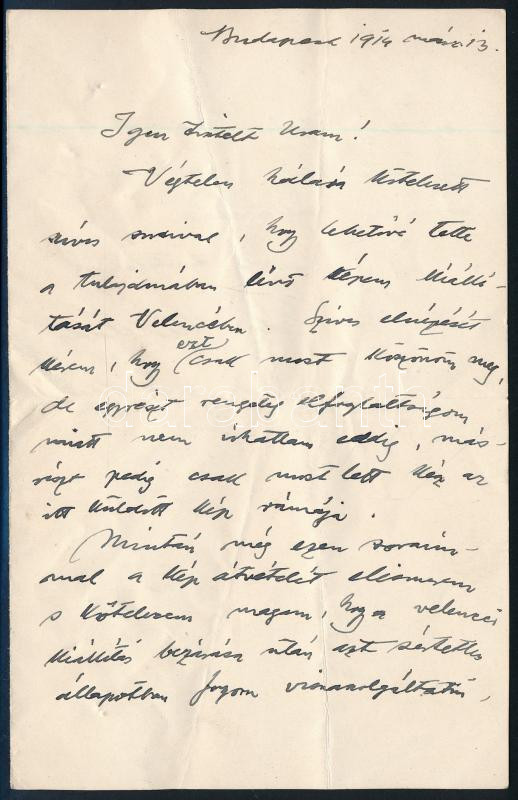 Budapest 1914 márc. 13.
Igen tisztelt Uram!
Végtelen hálára kötelezett
szíves soraival, hogy lehetővé tette
a tulajdonában lévő képem kiállí-
tását Velencében. Szíves elnézését
kérem, hogy ezt csak most köszönöm meg,
de egyrészt rengeteg elfoglaltságom
miatt nem írhattam eddig, más-
részt pedig csak most lett kész az
itt küldött kép rámája.
Miután még ezen soraim-
mal a kép átvételét elismerem
s kötelezem magam, hogy a velencei
kiállítás bezárása után azt sértetlen
állapotban fogom visszaszolgáltatni,
darabanth